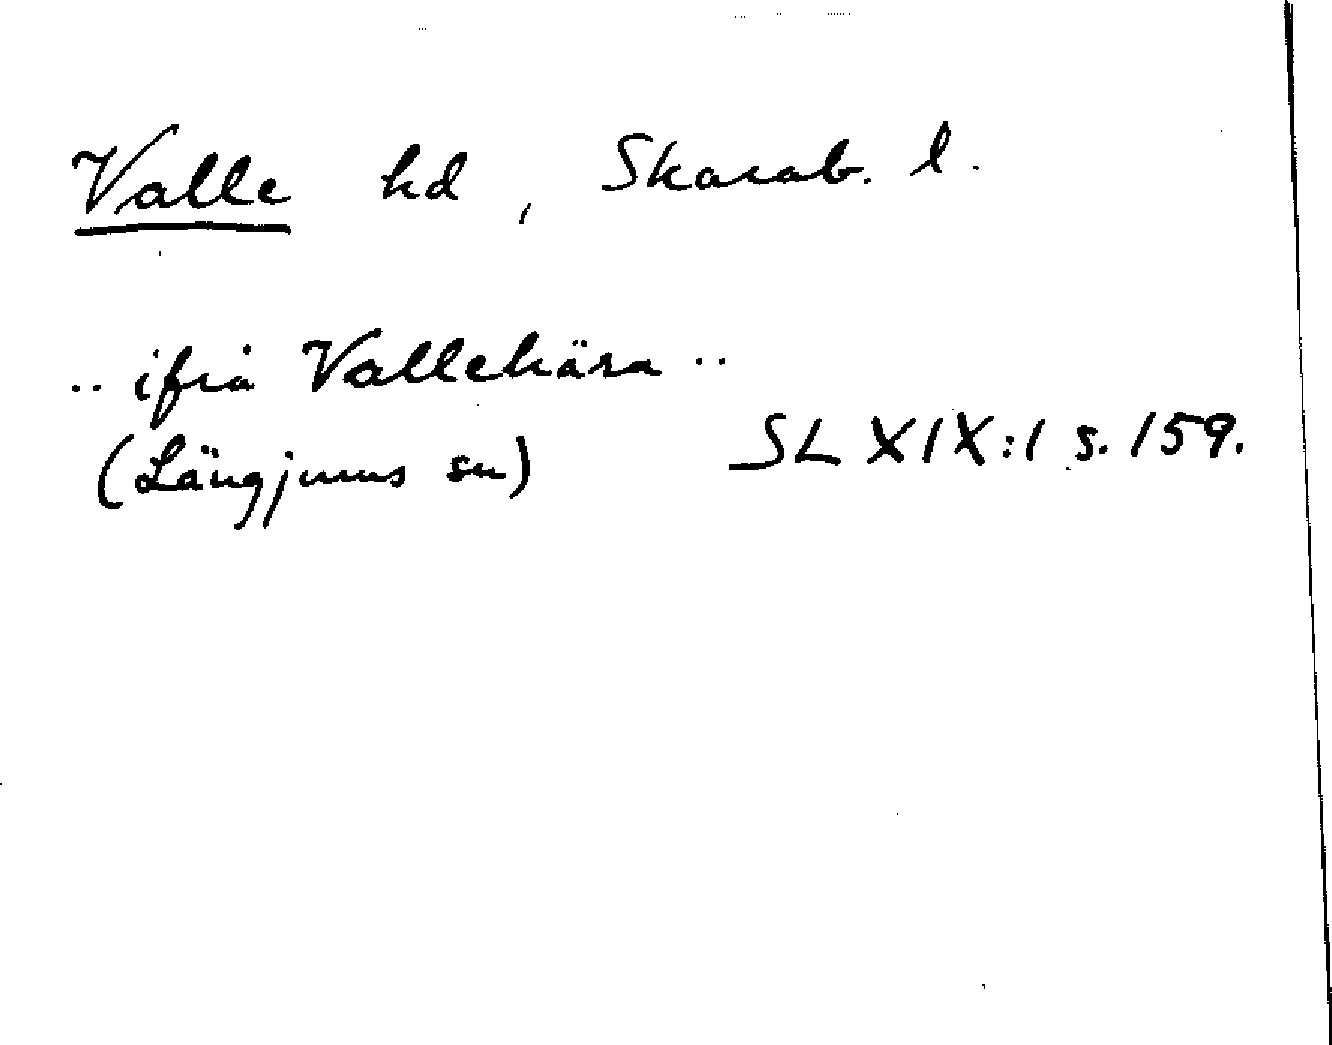 Valle hd, Skarab. l.
.. ifrå Vallehära ..
(Längjums sn) SL XIX:1 s. 159.